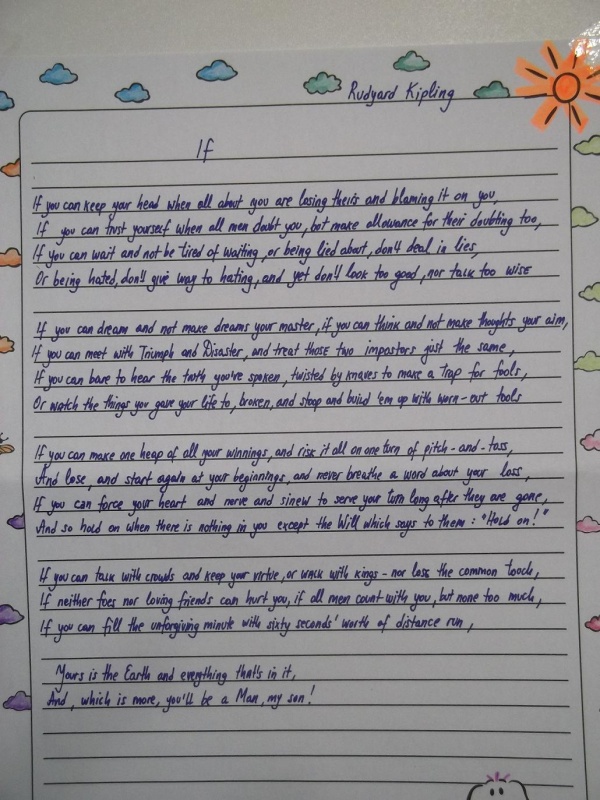 Rudyard Kipling
If
If you can keep your head when all about you are losing theirs and blaming it on you,
If you can trust yourself when all men doubt you, but make allowance for their doubting too,
If you can wait and not be tired of waiting, or being lied about, don't deal in lies,
Or being hated, don't give way to hating, and yet don't look too good, nor talk too wise
If you can dream and not make dreams your master, if you can think and not make thoughts your aim,
If you can meet with Triumph and Disaster, and treat those two impostors just the same,
If you can bare to hear the truth you've spoken, twisted by knaves to make a trap for fools,
Or watch the things you gave your life to, broken, and stoop and build 'em up with worn-out tools
If you can make one heap of all your winnings, and risk it all on one turn of pitch-and-toss,
And lose, and start again at your beginnings, and never breathe a word about your loss,
If you can force your heart and nerve and sinew to serve your turn long after they are gone,
And so hold on when there is nothing in you except the Will which says to them: "Hold on!"
If you can talk with crowds and keep your virtue, or walk with kings - nor lose the common touch,
If neither foes nor loving friends can hurt you, if all men count with you, but none too much,
If you can fill the unforgiving minute with sixty seconds' worth of distance run,
Yours is the Earth and everything that's in it,
And, which is more, you'll be a Man, my son!